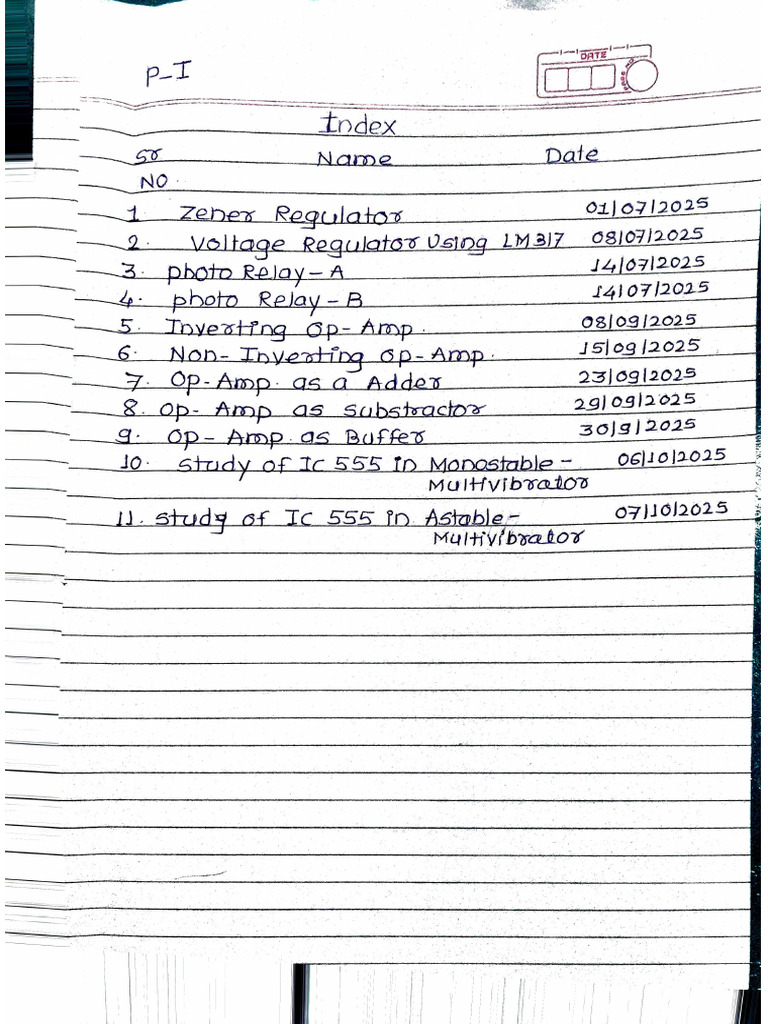 P-I
DATE
Index
Sr Name Date
NO.
1. Zener Regulator 01/07/2025
2. Voltage Regulator Using LM317 08/07/2025
3. photo Relay-A 14/07/2025
4. photo Relay-B 14/07/2025
5. Inverting Op-Amp. 08/09/2025
6. Non-Inverting Op-Amp. 15/09/2025
7. Op-Amp. as a Adder 23/09/2025
8. Op-Amp as substractor 29/09/2025
9. Op-Amp. as Buffer 30/9/2025
10. Study of IC 555 in Monostable- 06/10/2025
Multivibrator
11. Study of IC 555 in Astable- 07/10/2025
Multivibrator